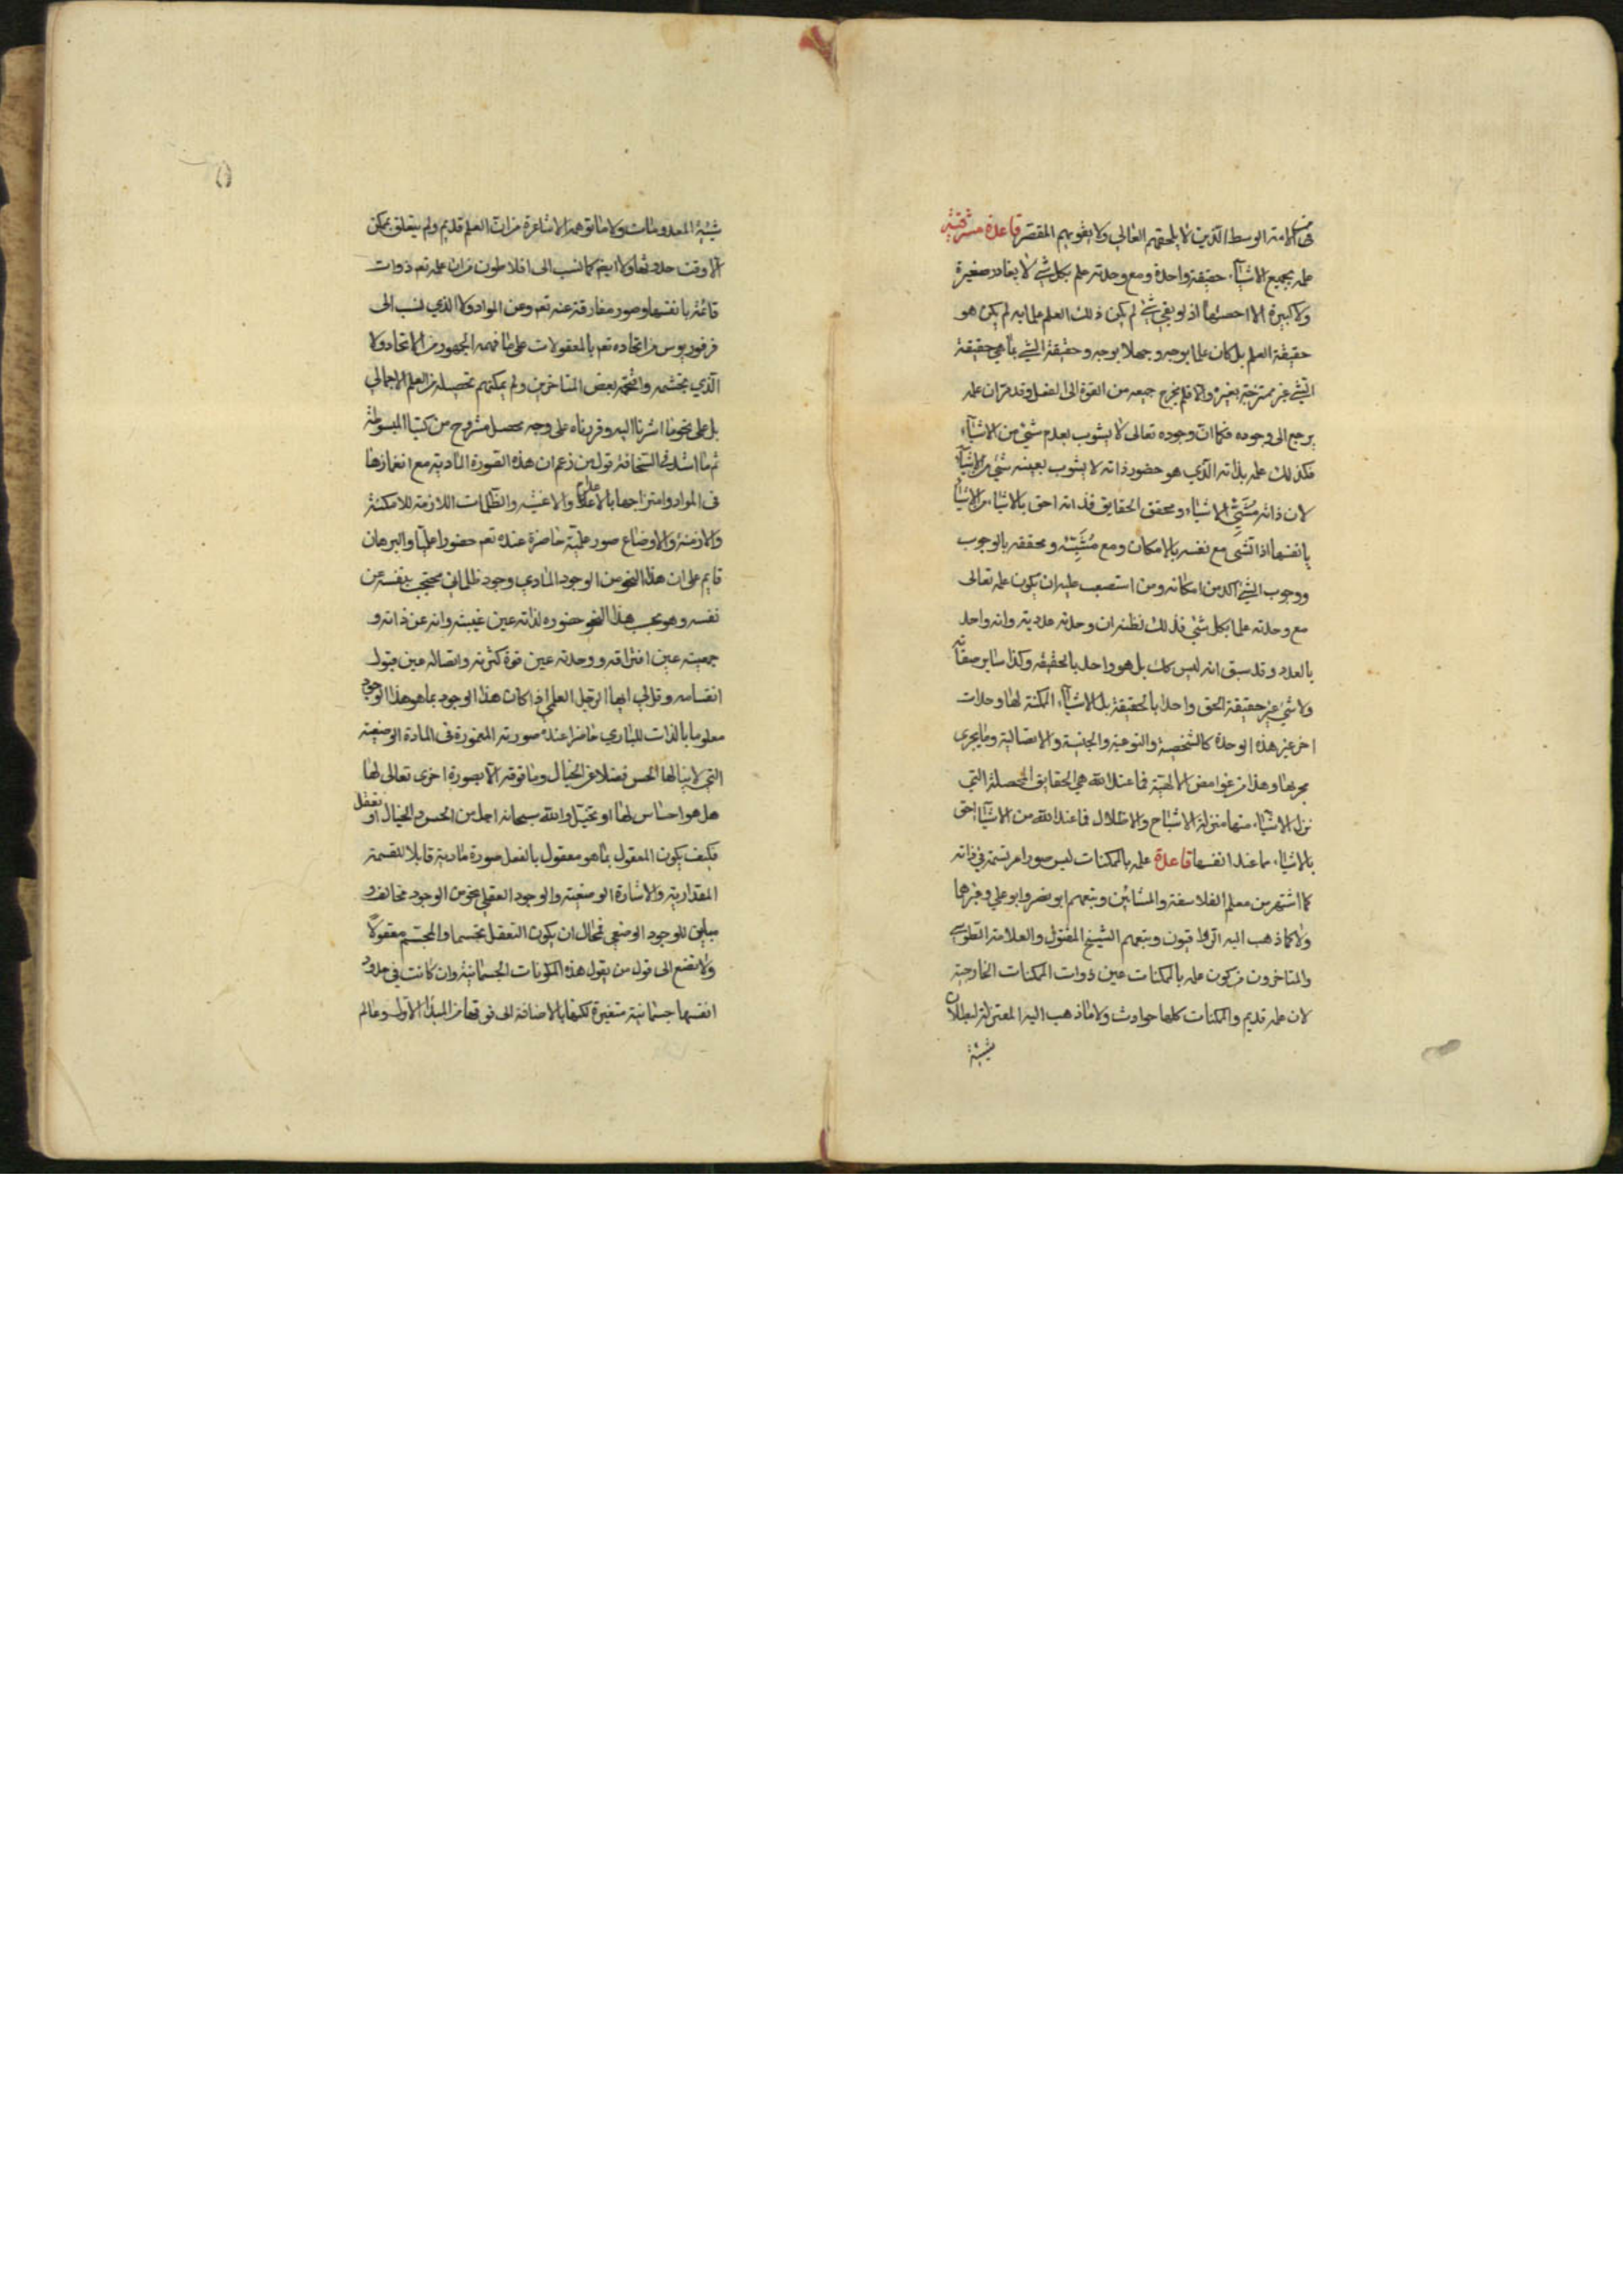 من الامة الوسط الذين لا يلحقهم الغالي ولا يفوتهم المقصر قاعدة مشرقية
علمه بجميع الاشياء حقيقة واحدة ومع وحدته علم بكل شي لا يغادر صغيرة
ولا كبيرة الا احصيها اذ لو بقي شي لم يكن ذلك العلم علما به لم يكن هو
حقيقة العلم بل كان علما بوجه وجهلا بوجه وحقيقة الشي بما هي حقيقة
الشي غير ممتزجة بغيره والا فلم يخرج جميعه من القوة الى الفعل وقد مر ان علمه
يرجع الى وجوده فكما ان وجوده تعالى لا يشوب بعدم شي من الاشياء
فكذلك علمه بذاته الذي هو حضور ذاته لا يشوب بغيبة شي من الاشياء
لان ذاته مشيئ الاشياء ومحقق الحقايق فذاته احق بالاشياء من الاشياء
بانفسها اذ الشي مع نفسه بالامكان ومع مشيئه ومحققه بالوجوب
ووجوب الشي اكد من امكانه ومن استصعب عليه ان يكون علمه تعالى
مع وحدته علما بكل شي فذلك لظنه ان وحدته عددية وانه واحد
بالعدد وقد سبق انه ليس كك بل هو واحد بالحقيقة وكذا ساير صفاته
ولا شي غير حقيقة الحق واحدا بالحقيقة بل الاشياء الممكنة لها وحدات
اخر غير هذه الوحدة كالشخصية والنوعية والجنسية والاتصالية وما يجرى
مجريها وهذا من غوامض الالهية فما عند الله هي الحقايق المحصلة التي
نزل الاشياء منها منزلة الاشباح والاظلال فما عند الله من الاشياء احق
بالاشياء مما عند انفسها قاعدة علمه بالممكنات ليس صورا مرتسمة في ذاته
كما اشتهر من معلم الفلاسفة والمشائين وتبعهم ابو نصر وابو علي وغيرهما
ولا كما ذهب اليه الرواقيون وتبعهم الشيخ المقتول والعلامة الطوسي
والمتاخرون من كون علمه بالممكنات عين ذوات الممكنات الخارجية
لان علمه قديم والممكنات كلها حوادث ولا ما ذهب اليه المعتزلة لبطلان
شيئية
شيئية المعدومات ولا ما توهمه الاشاعرة من ان العلم قديم ولم يتعلق بممكن
الا وقت حدوثها ولا ايضا كما نسب الى افلاطون من ان علمه تعم ذوات
قائمة بانفسها وصور مفارقة عنه تعم وعن المواد ولا الذي نسب الى
فرفوريوس من اتحاده تعم بالمعقولات على ما فهمه الجمهور من الاتحاد ولا
الذي تجشمه بعض المتاخرين ولم يمكنهم تحصيله من العلم الاجمالي
بل على نحو ما اشرنا اليه وقررناه على وجه محصل مشروح من كتبنا المبسوطة
ثم ما اشد في السخافة قول من زعم ان هذه الصورة المادية مع انغمارها
فى المواد وامتزاجها بالاعدام والاغشية والظلمات اللازمة للامكنة
والازمنة والاوضاع صور علمية حاضرة عنده تعم حضورا علميا والبرهان
قايم على ان هذا النحو من الوجود المادي وجود ظلماني محتجب بنفسه عن
نفسه وهو بحسب هذا النحو حضوره لذاته عين غيبته وانه عن ذاته و
جمعيته عين افتراقه ووحدته عين قوة كثرته واتصاله عين قبول
انقسامه وقل لي ايها الرجل العلمي اذا كان هذا الوجود بما هو هذا الوجود
معلوما بالذات للباري حاضرا عنده صورته المغمورة فى المادة الوضعية
التي لا ينالها الحس فضلا عن الخيال وما فوقه الا بصورة اخرى تعالى لها
هل هو احساس لها او تخيل والله سبحانه اجل من الحس والخيال او تعقل
فكيف يكون المعقول بما هو معقول بالفعل صورة مادية قابلا للقسمة
المقدارية والاشارة الوضعية والوجود العقلي نحو من الوجود مخالف و
مباين للوجود الوضعي فمحال ان يكون التعقل تجسما والمجسم معقولا
ولا تصغ الى قول من يقول هذه المكونات الجسمانية وان كانت في حدود
انفسها جسمانية متغيرة لكنها بالاضافة الى فوقها من المبدا الاول وعالم